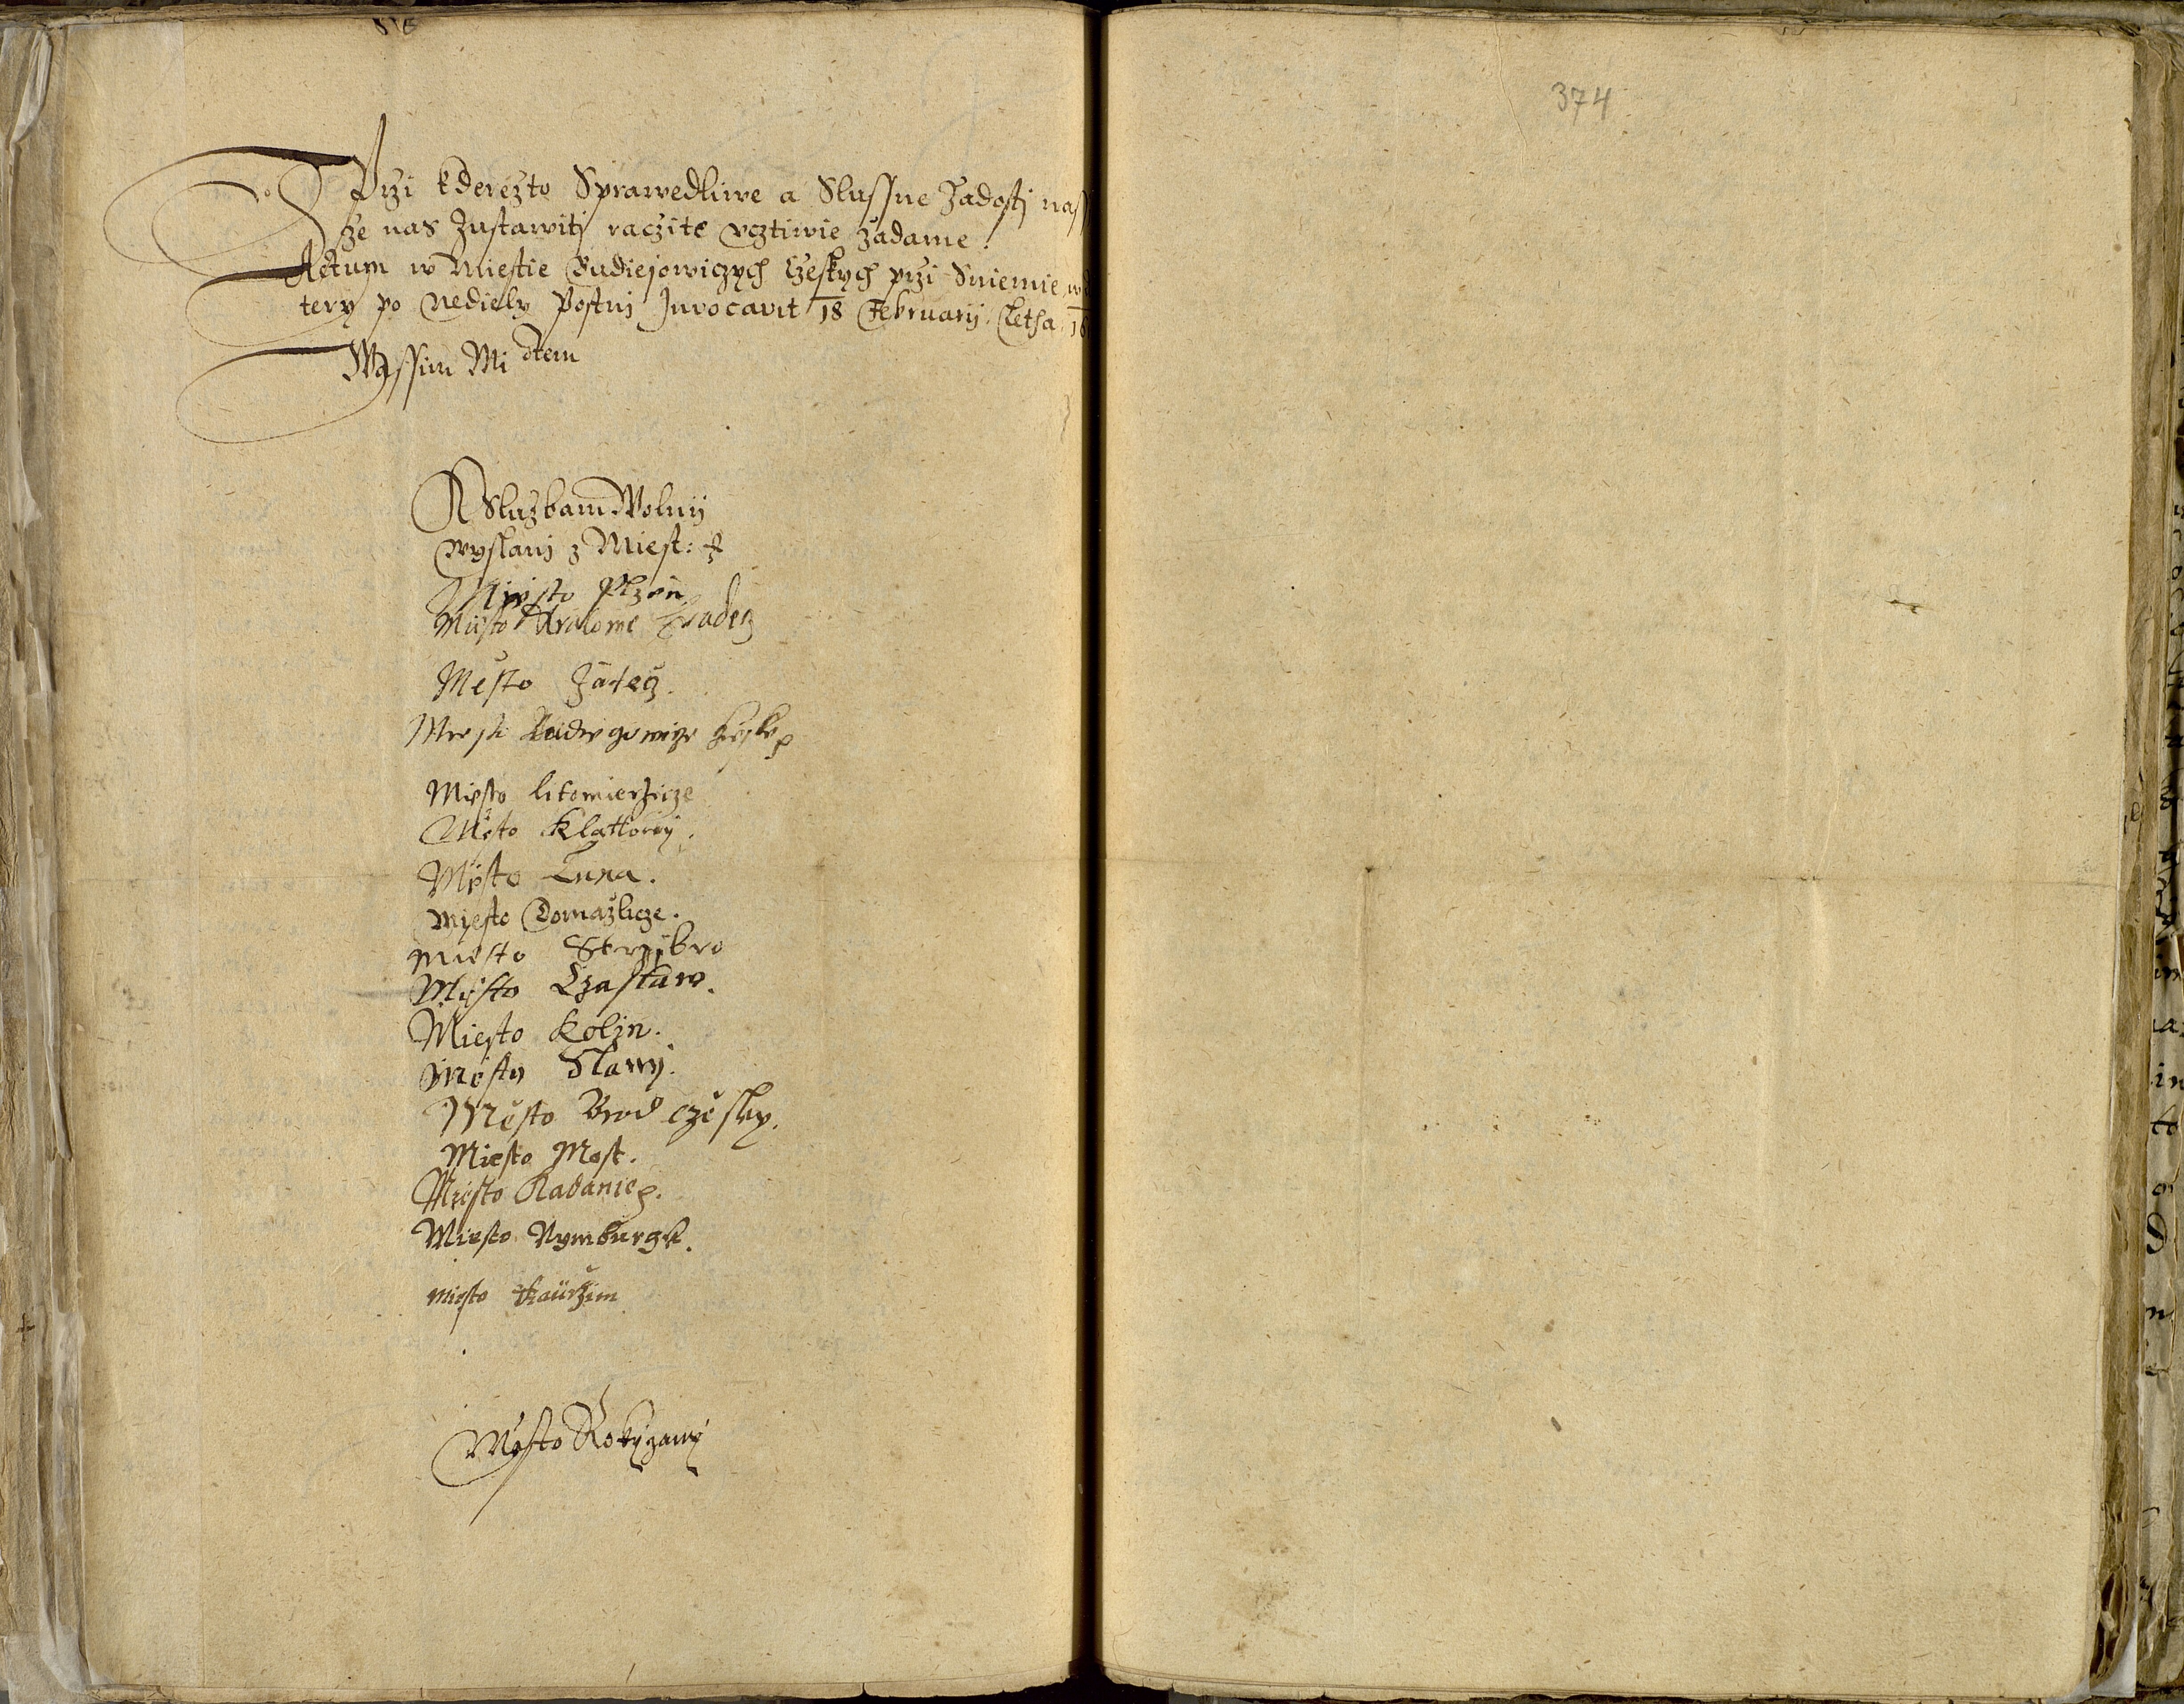 374
Przi kderezto Sprawedliwe a Slussne Žadosti nass
že nas Zustawiti raczite vcztiwie žadame.
Actum w Miestie Budiejowiczych Czeskych przi Sniemie w
tery po Nediely Postni Invocavit 18 February. Letha 16
Wassim Mi dtem
K Sluzbam Wolnij
wyslani z Miest:
Miesto Plzen
Miesto Kralowe Hradecz
Mesto Žatecz.
Miesto Budiegowicze Czeske
Miesto Litomierzicze
Město Klattowy.
Miesto Luna.
Miesto Domažlicze.
Miesto Strzibro
Miesto Czaslaw.
Miesto Kolin.
Město Slany.
Město Brod Czesky.
Miesto Most.
Miesto Kadanie.
Miesto Nymburgk.
miesto Kaurzim
Miesto Rokyczany